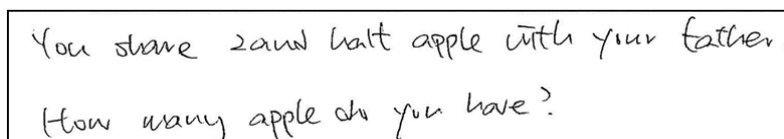 You share 2 and half apple with your father
How many apple do you have?